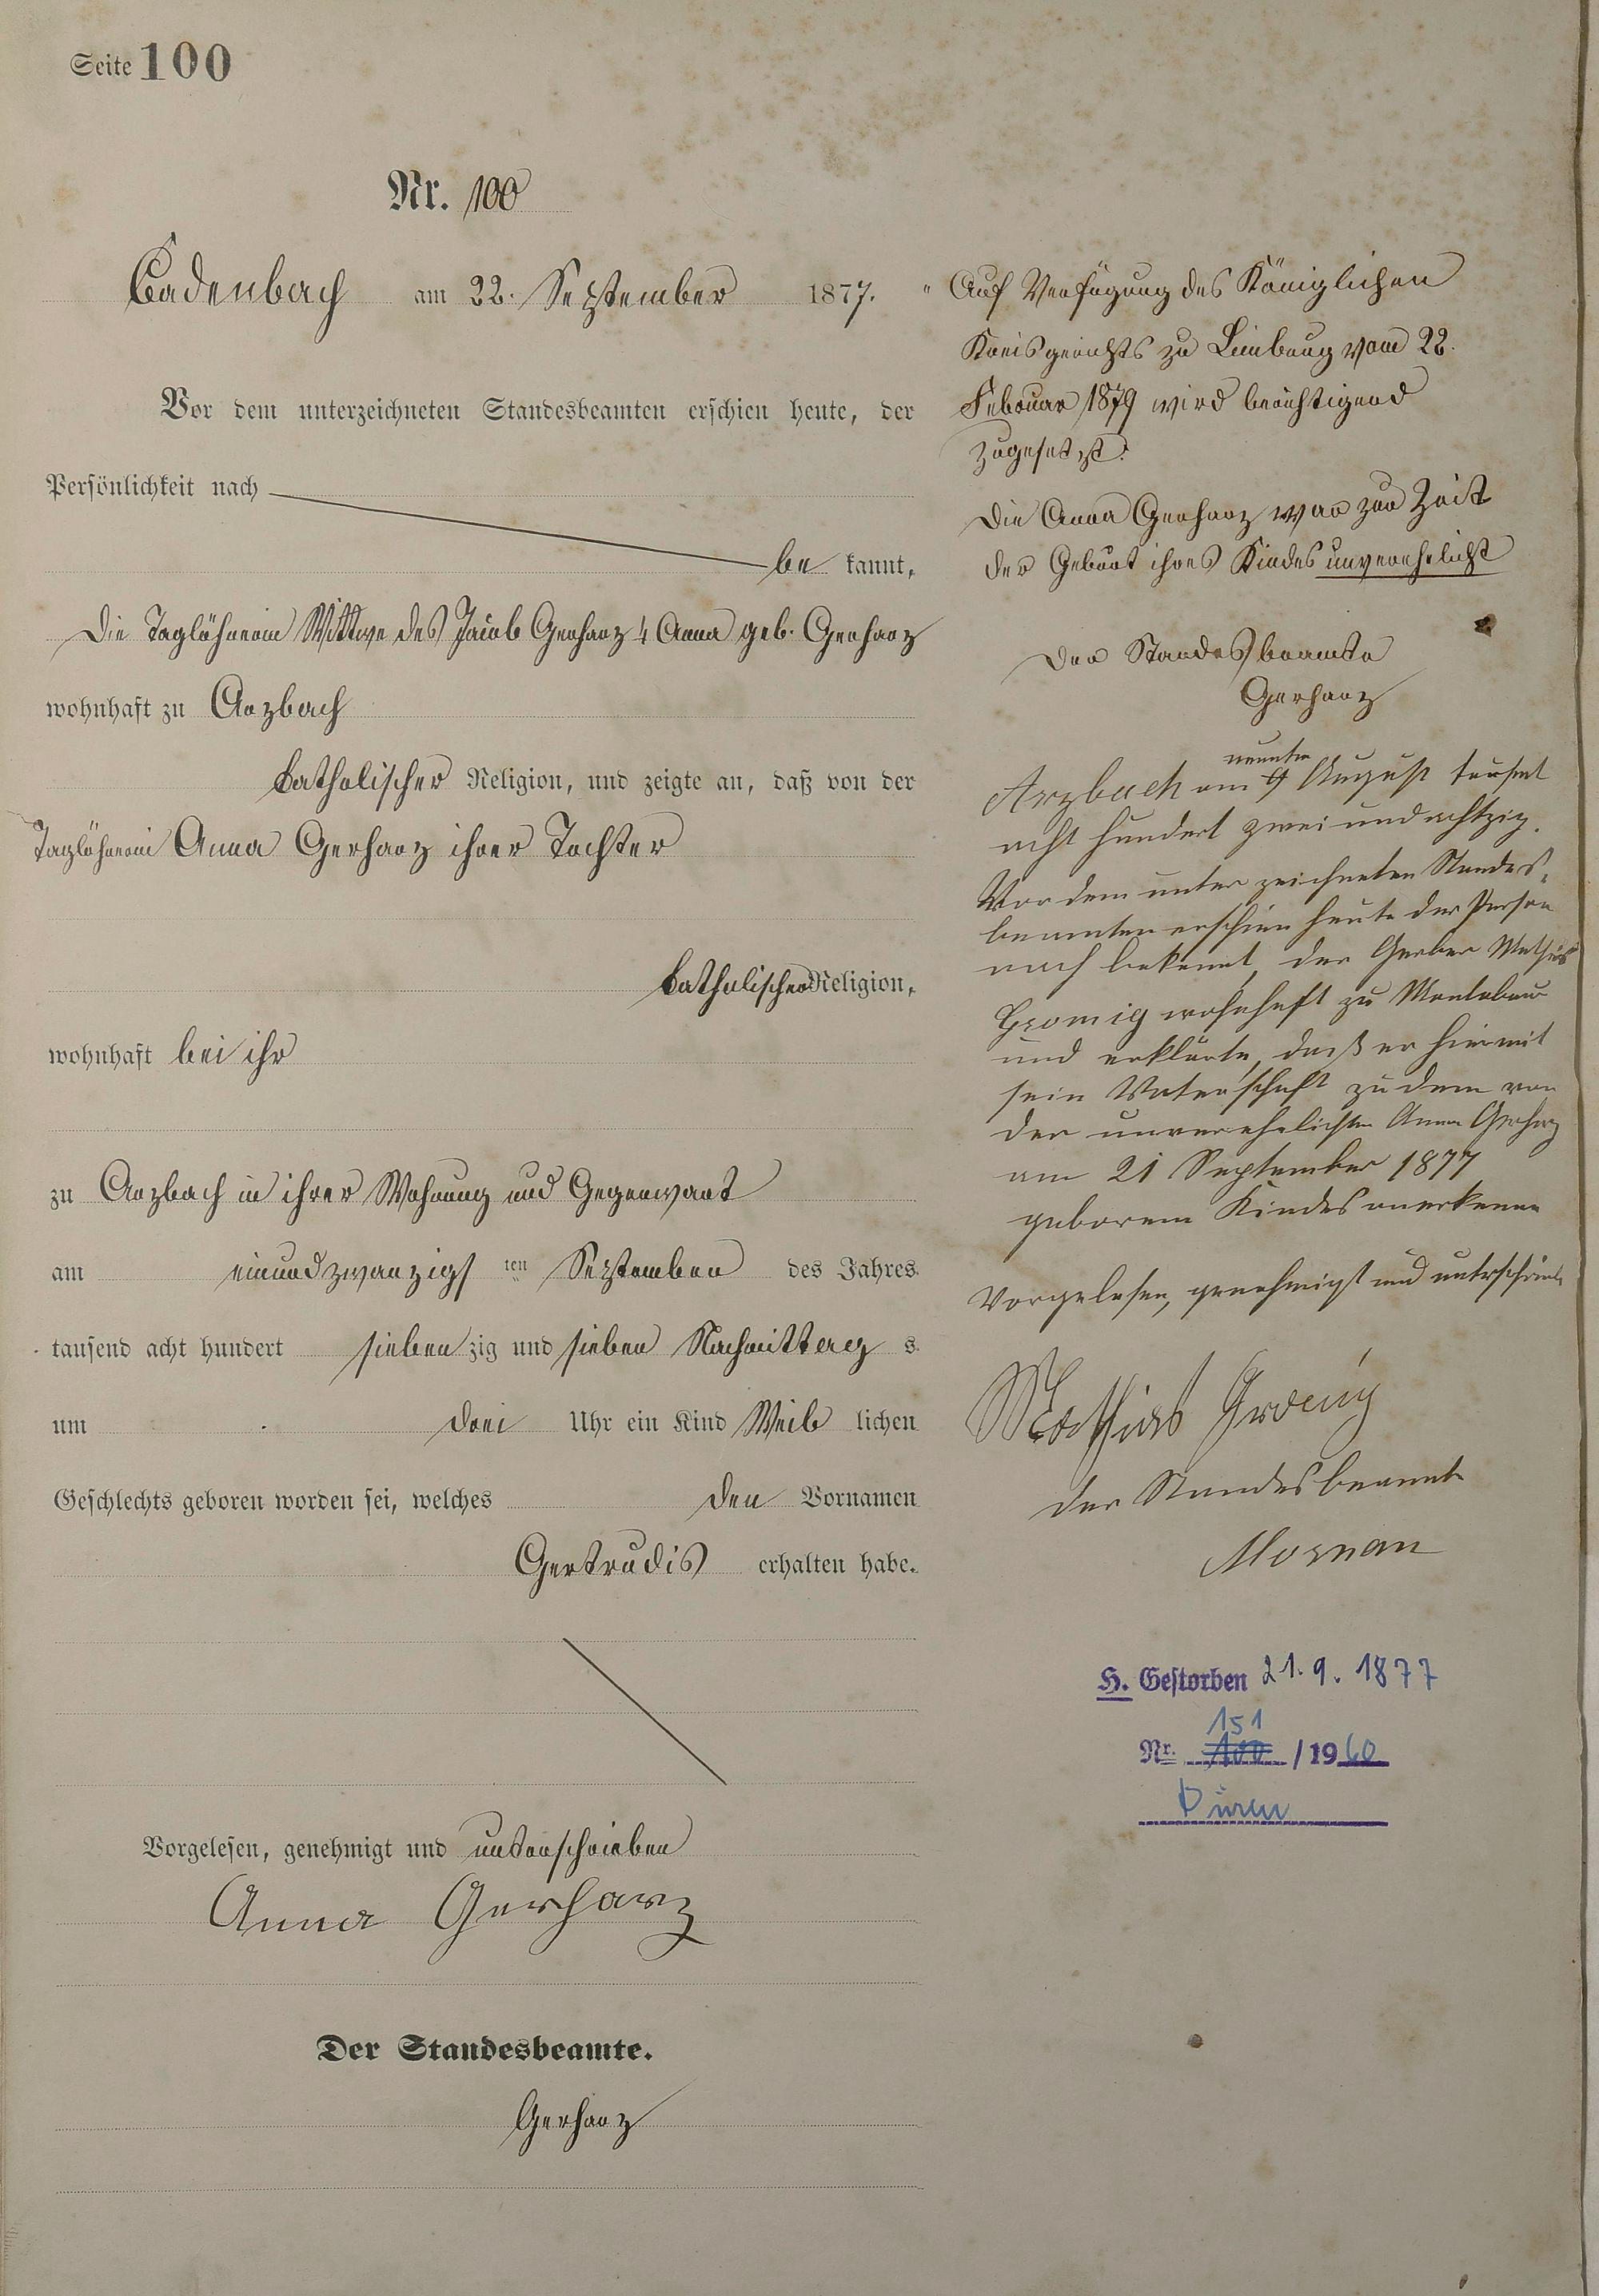 Seite 100
Nr. 100
Cadenbach am 22. September 1877.
Vor dem unterzeichneten Standesbeamten erschien heute, der
Persönlichkeit nach
be kannt,
die Taglöhnerin Wittwe des Jacob Gerharz 4 Anna geb. Gerharz
wohnhaft zu Arzbach
katholischer Religion, und zeigte an, daß von der
Taglöhnerin Anna Gerharz ihrer Tochter
katholischer Religion,
wohnhaft bei ihr
zu Arzbach in ihrer Wohnung und Gegenwart
am einundzwanzigs ten September des Jahres
tausend acht hundert sieben zig und sieben Nachmittag s
um drei Uhr ein Kind Weib lichen
Geschlechts geboren worden sei, welches den Vornamen
Gertrudis erhalten habe.
Vorgelesen, genehmigt und unterschrieben
Anna Gerharz
Der Standesbeamte.
Gerharz
Auf Verfügung des Königlichen
Kreisgerichts zu Limburg vom 22.
Februar 1879 wird berichtigend
zugesetzt:
Die Anna Gerharz war zur Zeit
der Geburt ihres Kindes unverehelicht
Der Standesbeamte
Gerharz
neunten
Arzbach am 9 August tausend
acht hundert zwei und achtzig.
Vor dem unterzeichneten Standes-
beamten erschien heute der Person
nach bekannt, der Gerber Mathias
wohnhaft zu Montabaur
und erklärte, daß er hiermit
sein Vaterschaft zu dem von
der unverehelichten Anna Gerharz
am 21 September 1877
geborenen Kindes anerkenne
Vorgelesen, genehmigt und unterschrieben
Mathias
der Standesbeamte
H. Gestorben 21. 9. 1877
151
Nr. 100 / 1960
Düren